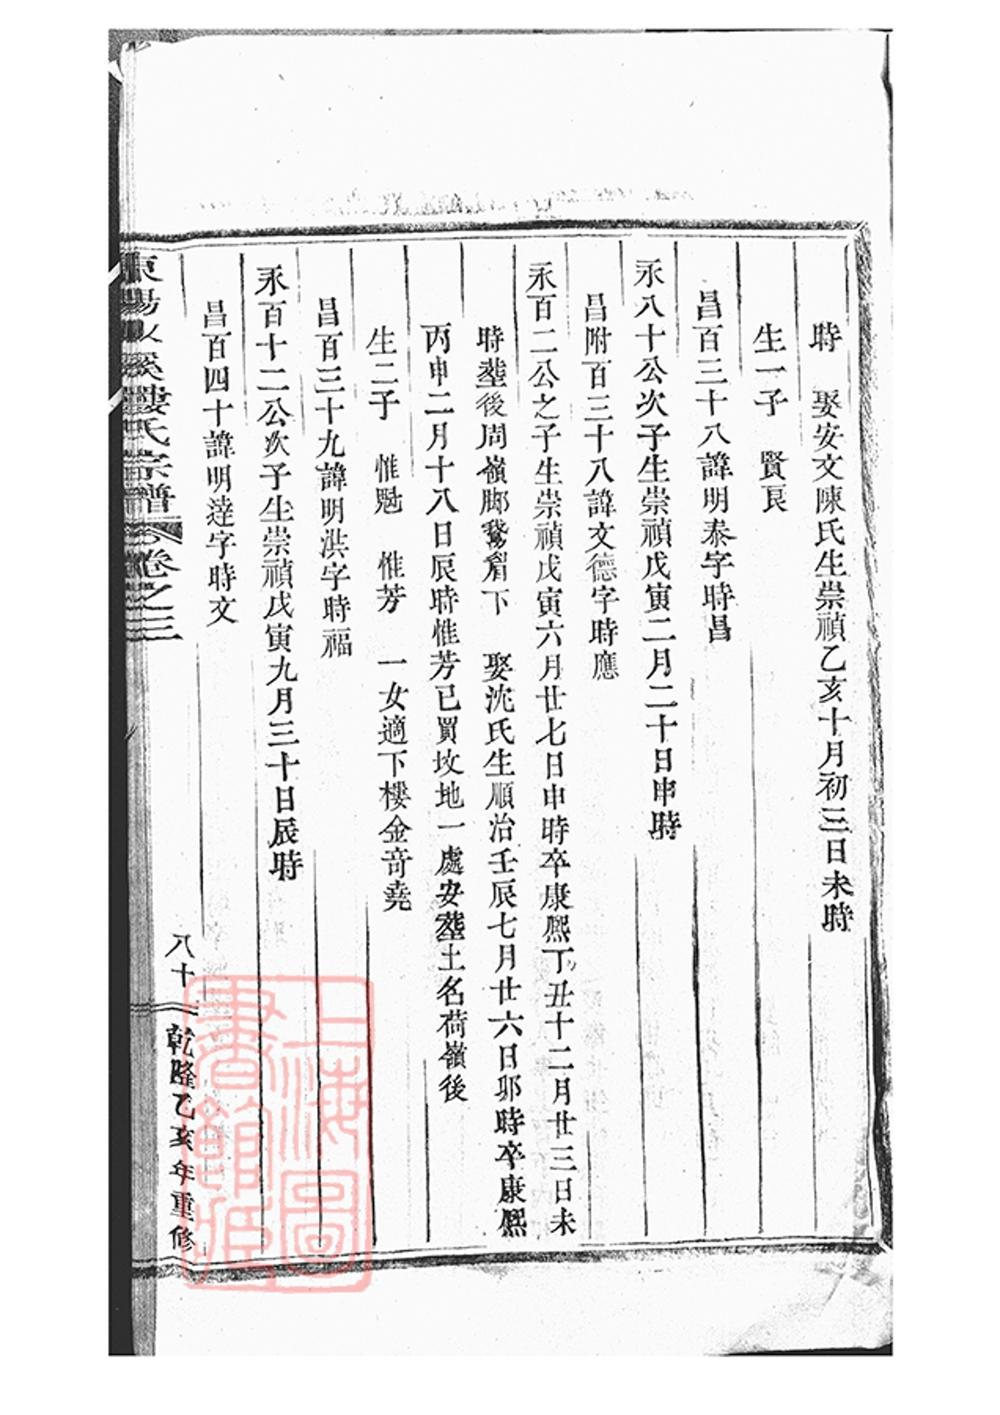 時　娶安文陳氏生崇禎乙亥十月初三日未時
生一子　賢良
昌百三十八諱明泰字時昌
永八十公次子生崇禎戊寅二月二十日申時
昌附百三十八諱文德字時應
永百二公之子生崇禎戊寅六月廿七日申時卒康熙丁丑十二月廿三日未
時塟後周嶺脚鵞眉下　娶沈氏生順治壬辰七月廿六日卯時卒康熙
丙申二月十八日辰時惟芳已買坟地一處安塟土名荷嶺後
生二子　惟勉　惟芳　一女適下樓金奇堯
昌百三十九諱明洪字時福
永百十二公次子生崇禎戊寅九月三十日辰時
昌百四十諱明達字時文
東陽 樓氏宗譜 卷之三
八十
乾隆乙亥年重修
上海圖書館藏